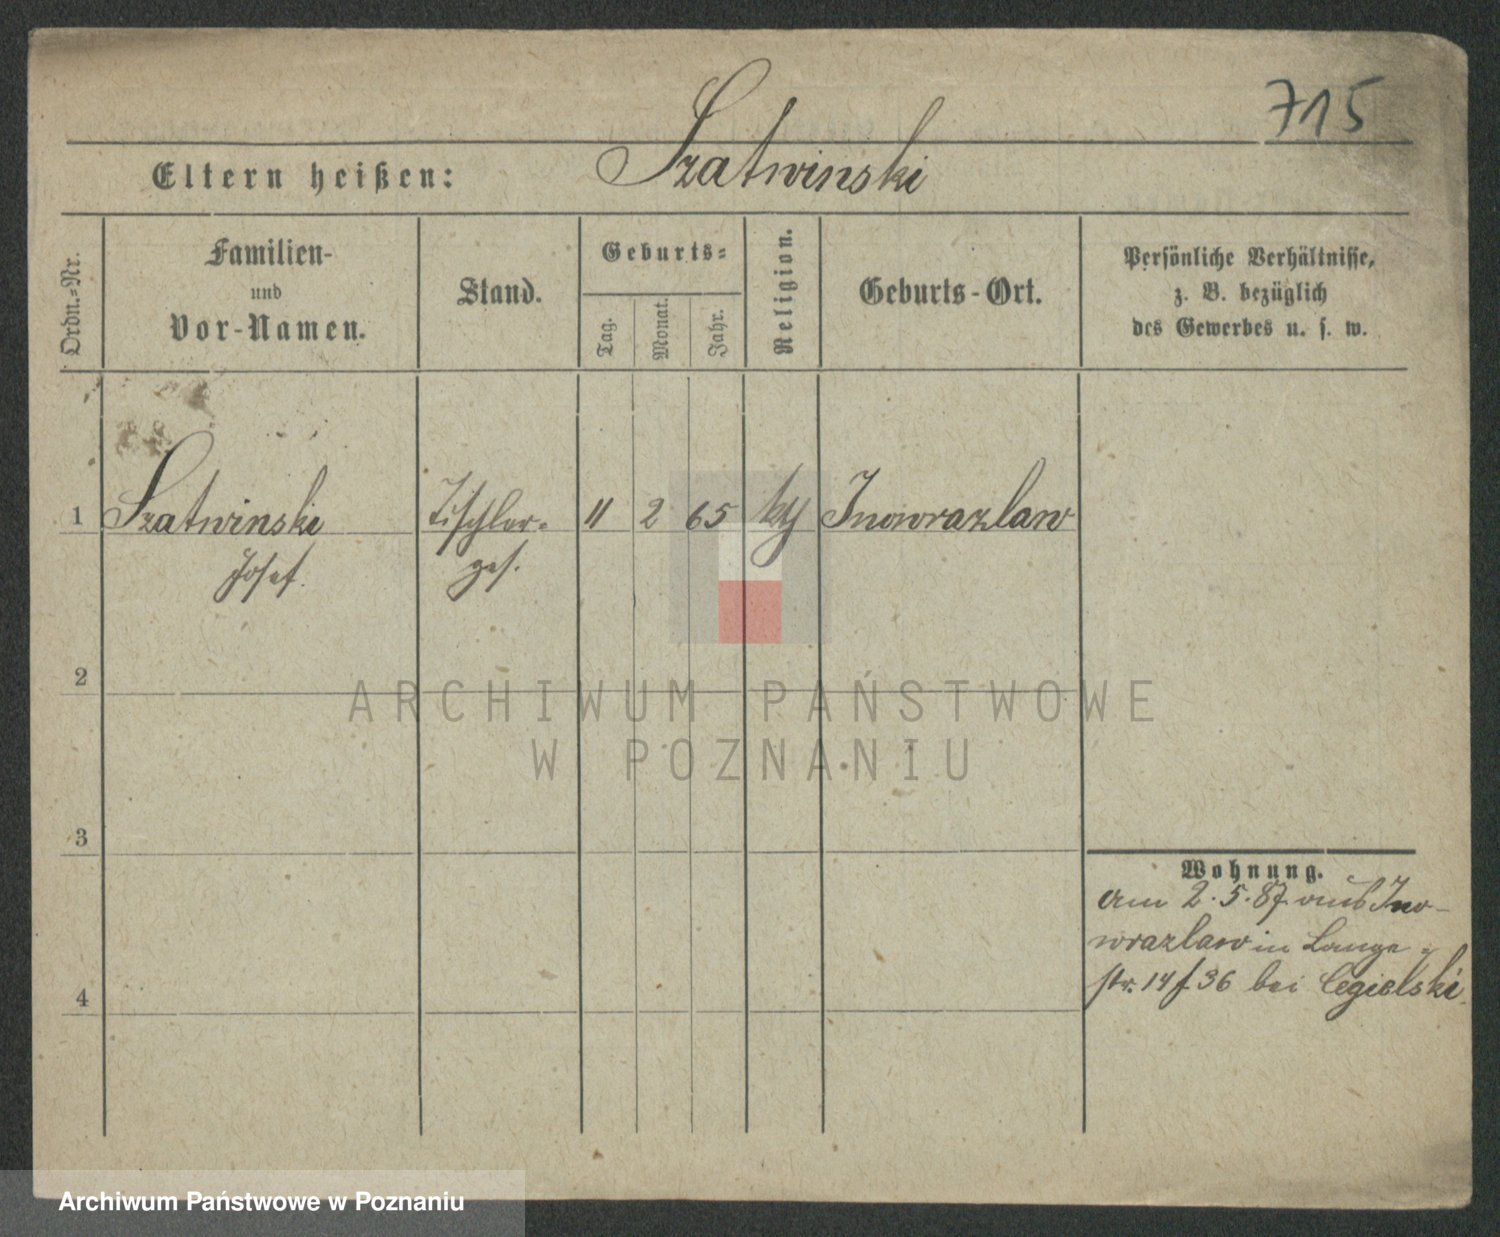 715
Szatwinski
Eltern heißen:
Ordn.=Nr.
Familien-
und
Vor-Namen.
Stand.
Geburts=
Tag.
Monat.
Jahr.
Religion.
Geburts-Ort.
Persönliche Verhältnisse,
z. B. bezüglich
des Gewerbes u. s. w.
1 Szatwinski Tischler= 11 2 65 Inowrazlaw
Josef. ges.
2
3
4
Wohnung.
am 2.5.87 aus Ino-
wrazlaw in Lange=
str. 14 f. 36 bei Cegielski
ARCHIWUM PAŃSTWOWE
W POZNANIU
Archiwum Państwowe w Poznaniu